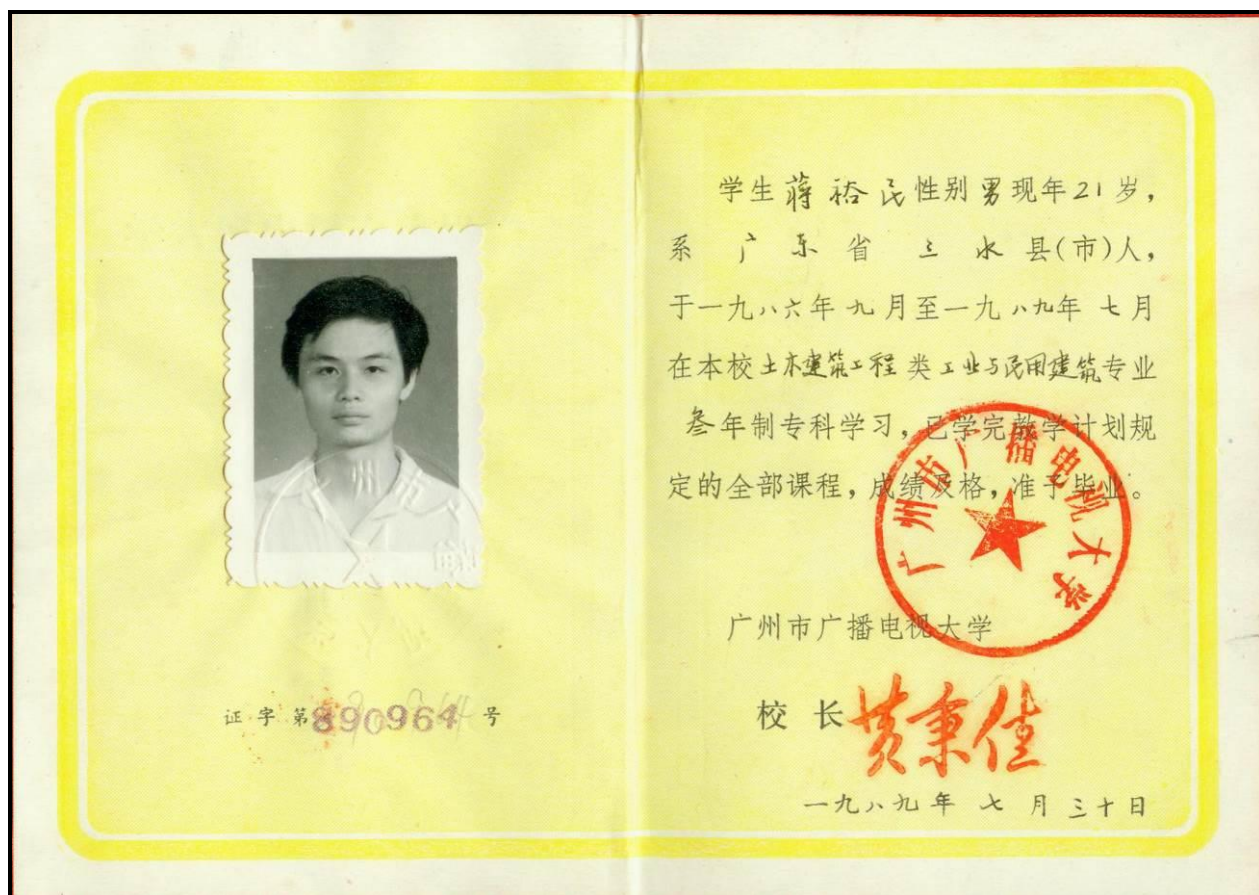 证字第890964号
学生蒋裕民性别男现年21岁，
系广东省三水县(市)人，
于一九八六年九月至一九八九年七月
在本校土木建筑工程类工业与民用建筑专业
叁年制专科学习，已学完教学计划规
定的全部课程，成绩及格，准予毕业。
广州市广播电视大学
广州市广播电视大学
校长黄秉佳
一九八九年七月三十日